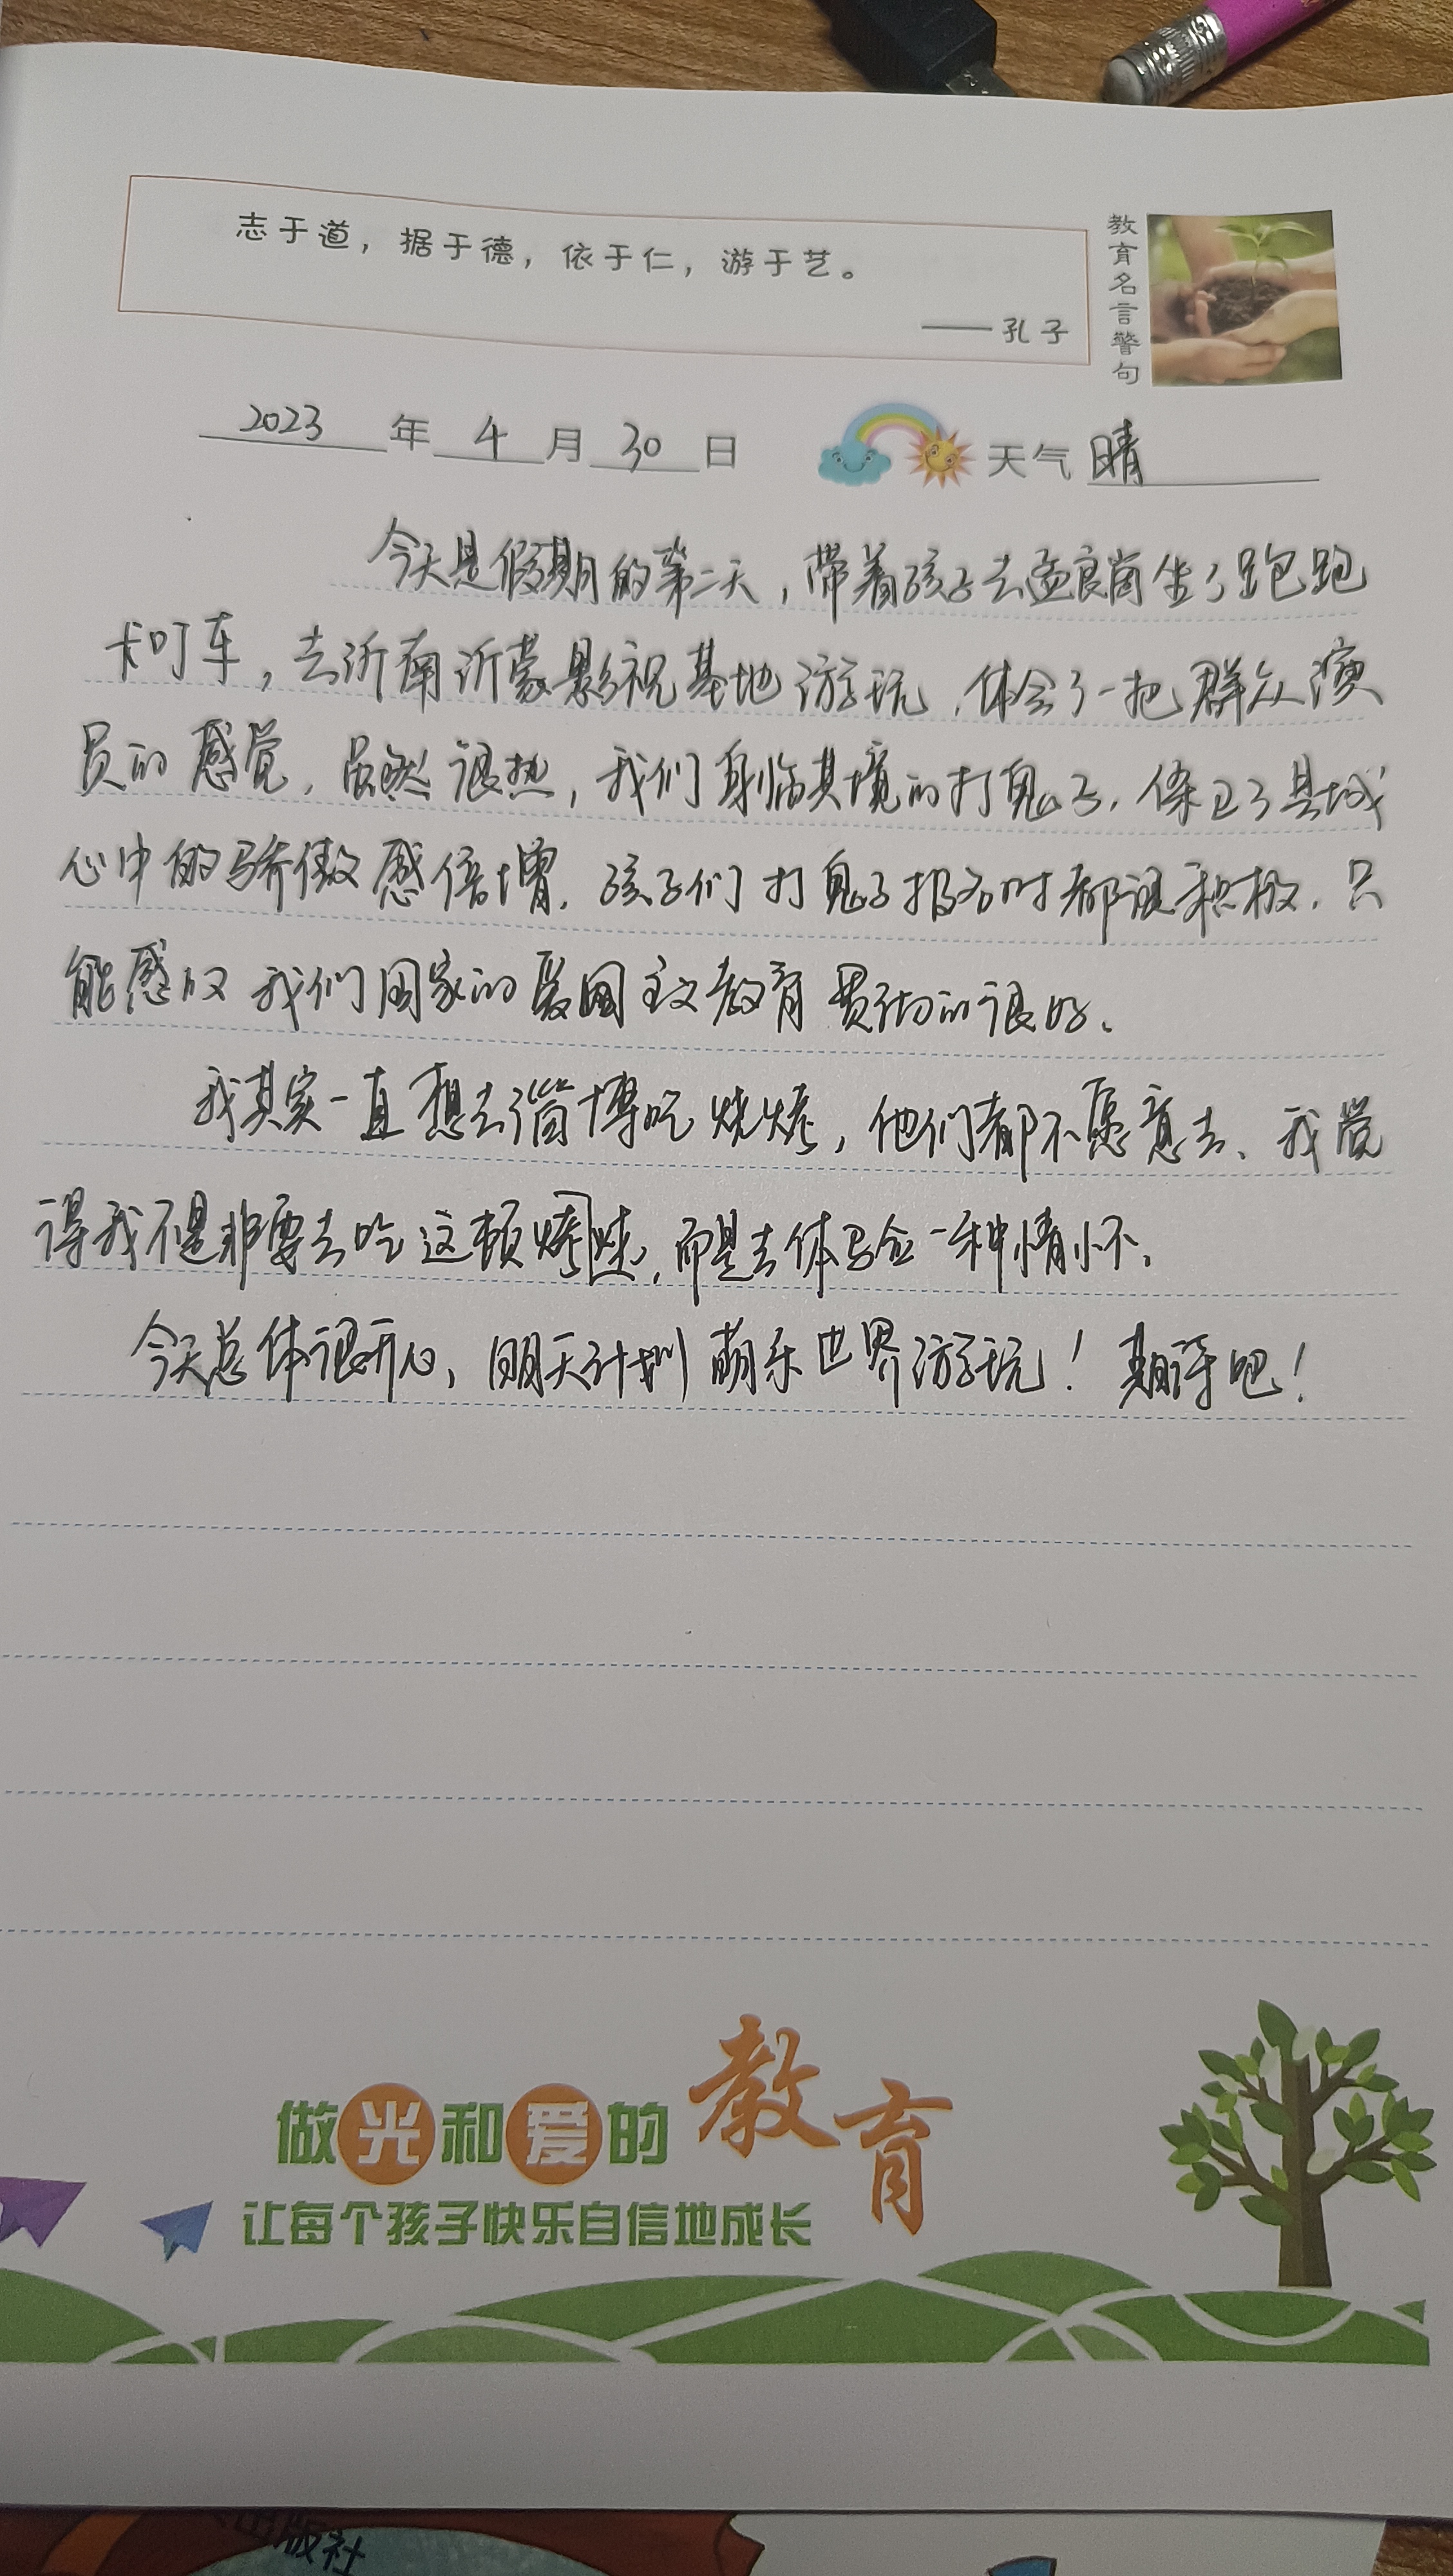 志于道，据于德，依于仁，游于艺。
——孔子
教育名言警句
2023年4月30日 天气 晴
今天是假期的第二天，带着孩子去孟良崮坐了跑跑
卡叮车，去沂南沂蒙影视基地游玩，体会了一把群众演
员的感觉，虽然很热，我们身临其境的打鬼子，保卫了县城
心中的骄傲感倍增，孩子们打鬼子报名时都很积极，只
能感叹我们国家的爱国主义教育贯彻的很好。
我其实一直想去淄博吃烧烤，他们都不愿意去、我觉
得我不是非要去吃这顿烤，而是去体验一种情怀。
今天总体很开心，明天计划萌乐世界游玩！期待吧！
做光和爱的教育
让每个孩子快乐自信地成长
出版社